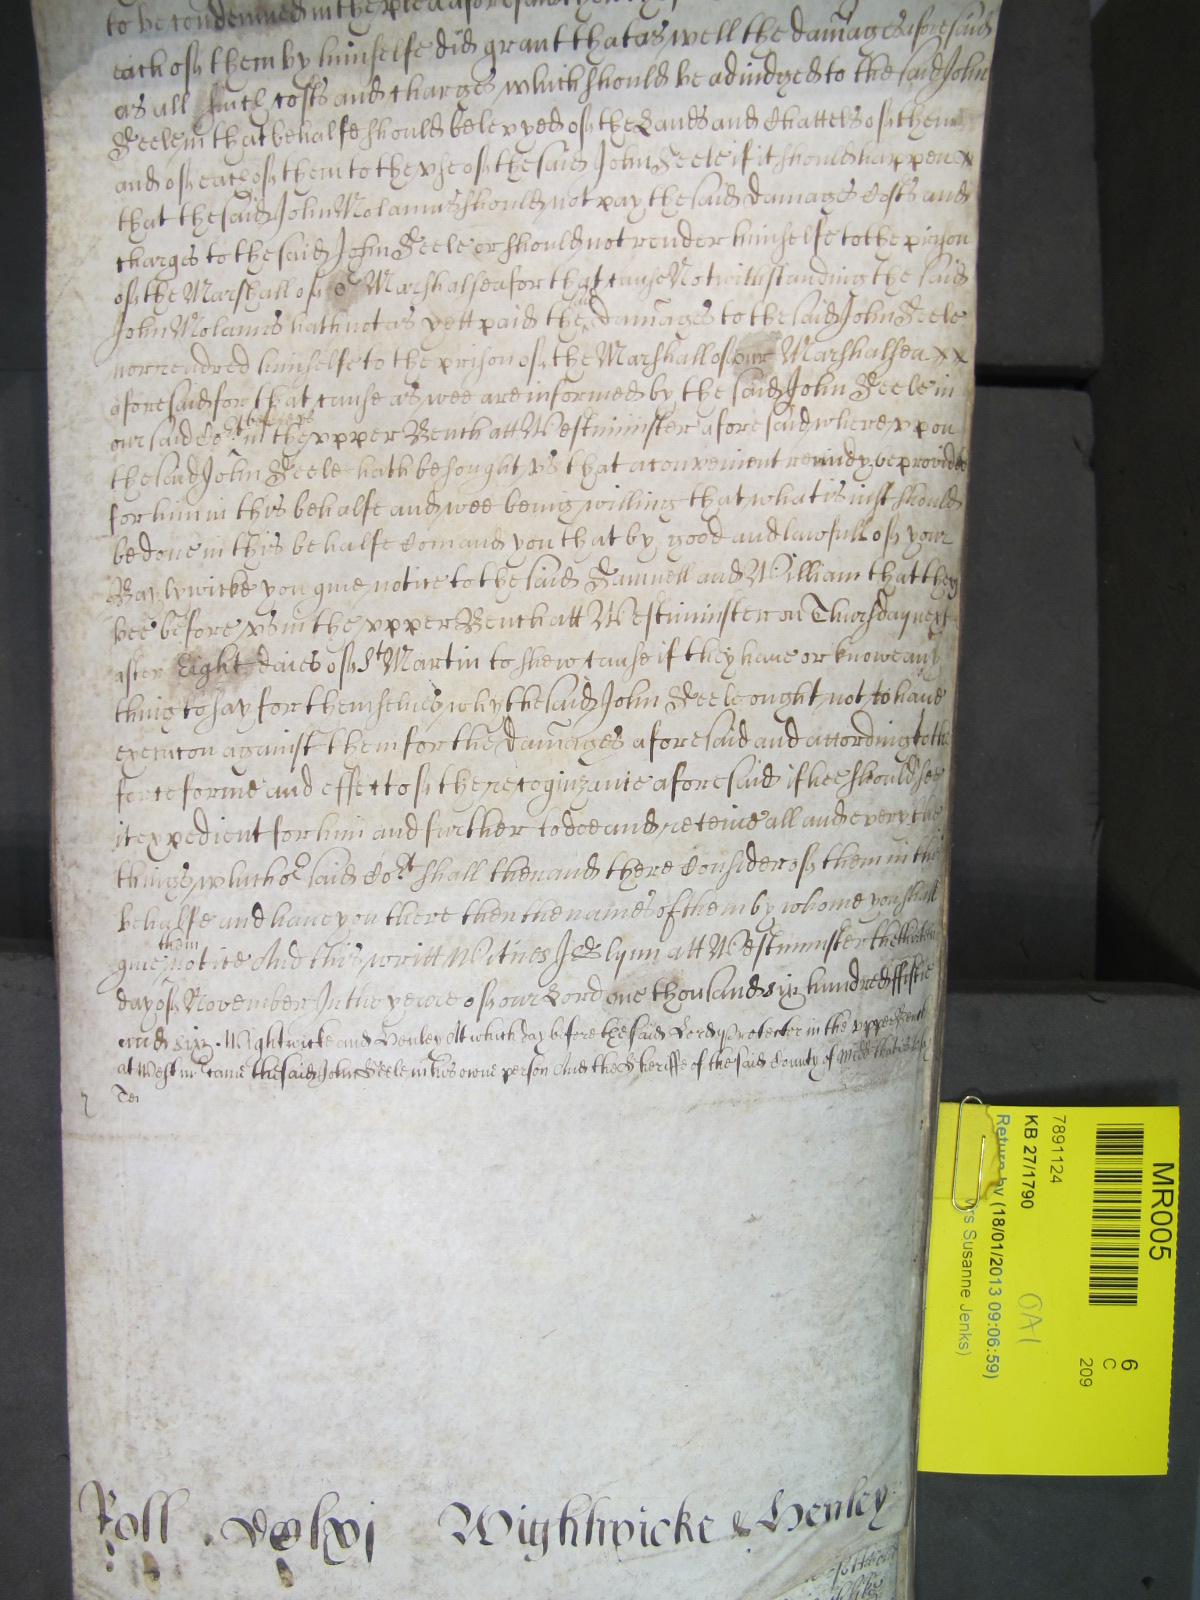 to be condemned in the plea aforesaid then they
each of them by himselfe did grant that as well the damages aforesaid
as all such costs and charges which should be adiudged to the said John
Feele in that behalfe should be levyed of the Lands and Chattels of them
and of each of them to the vse of the said John Feele if it should happen
that the said John Molanus should not pay the said damages Costs and
charges to the said John Feele or should not render himselfe to the prison
of the Marshall of or Marshalsea for that cause Notwithstanding the said
John Molanus hath not as yett paid the said damages to the said John Feele
nor rendred himselfe to the prison of the Marshall of our Marshalsea
aforesaid for that cause as wee are informed by the said John Feele in
our said Cort before vs in the vpper Bench att Westminster aforesaid wherevpon
the said John Feele hath besought vs that a convenient remidy be provided
for him in this behalfe and wee being willing that what is iust should
be done in this behalfe Comand you that by good and lawfull of your
Baylywicke you giue notice to the said Samuell and William that they
bee before vs in the vpper Bench att Westminster on Thursday next
after Eight daies of St Martin to shew cause if they haue or knowe any
thing to say for themselues why the said John Feele ought not to haue
execucon against them for the damages aforesaid and according to the
force forme and effect of the recognizance aforesaid if hee should see
it expedient for him and further to doe and receiue all and every the
things which or said Cort shall then and there Consider of them in this
behalfe and haue you there then the names of them by whome you shall
giue them notice And this writt Witnes J Glynn att Westminster the
day of November In the yeare of our Lord one thousand six hundred fiftie
and six. Wightwicke and Henley Att which day before the said Lord Protector in the vpper Bench
at Westmr came the said John Feele in his owne person And the Sheriffe of the said County of Midd that is to say
Roll Wightwicke & Henley
MR005
7891124
KB 27/1790
Return by (18/01/2013 09:06:59)
Mrs Susanne Jenks)
OA1
6
C
209